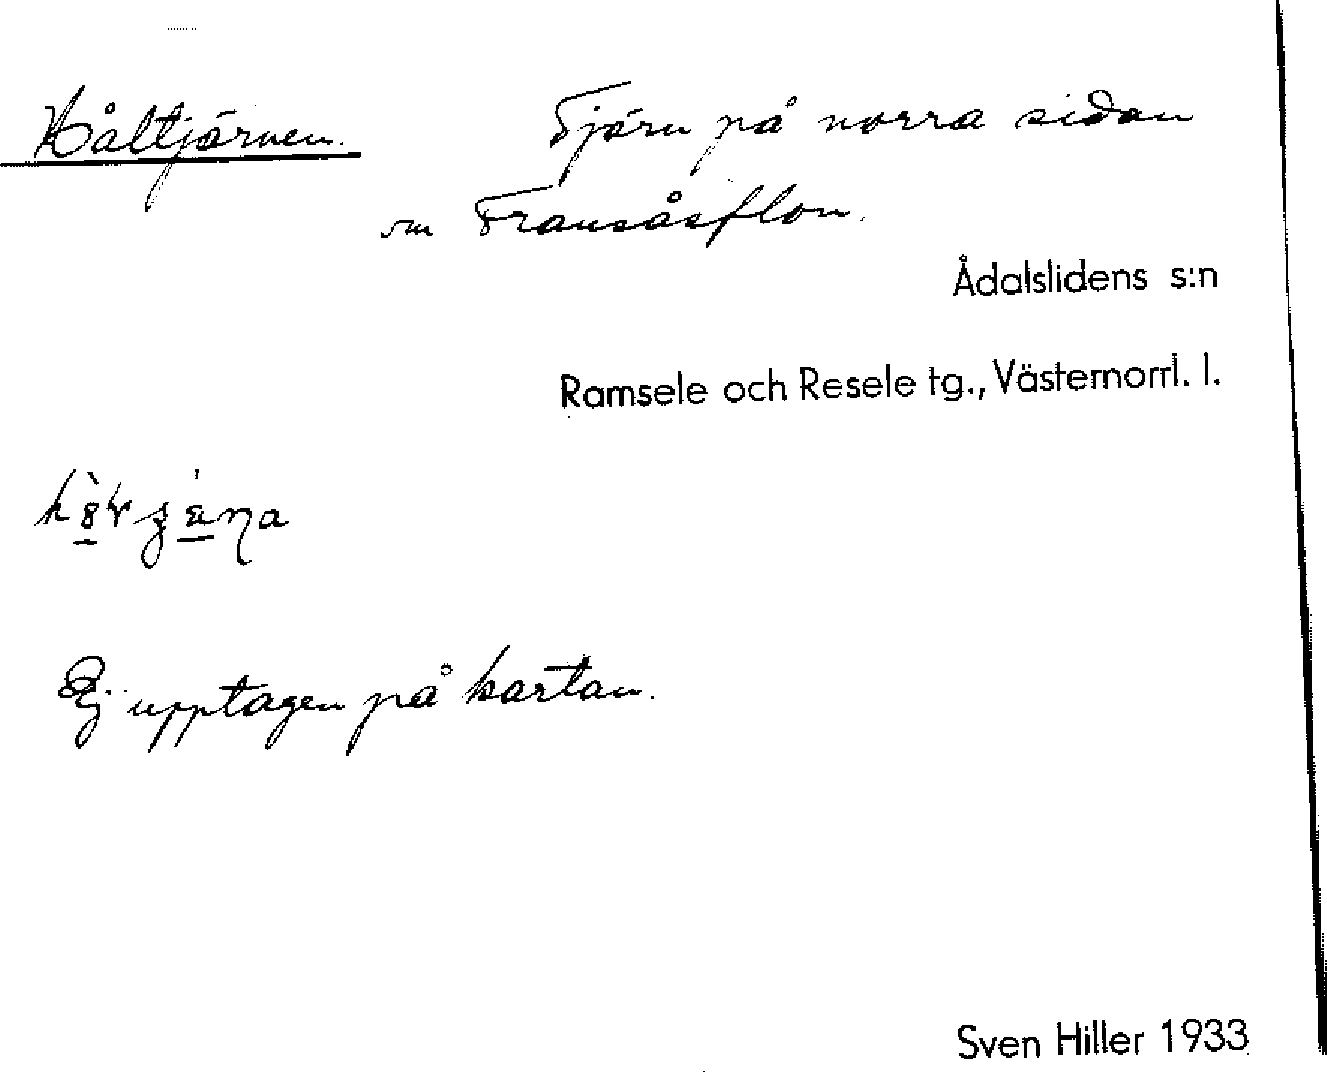 Håltjärnen.
Tjärn på norra sidan
om Transåsflon.
Ådalslidens s:n
Ramsele och Resele tg., Västernorrl. l.
Ej upptagen på kartan.
Sven Hiller 1933